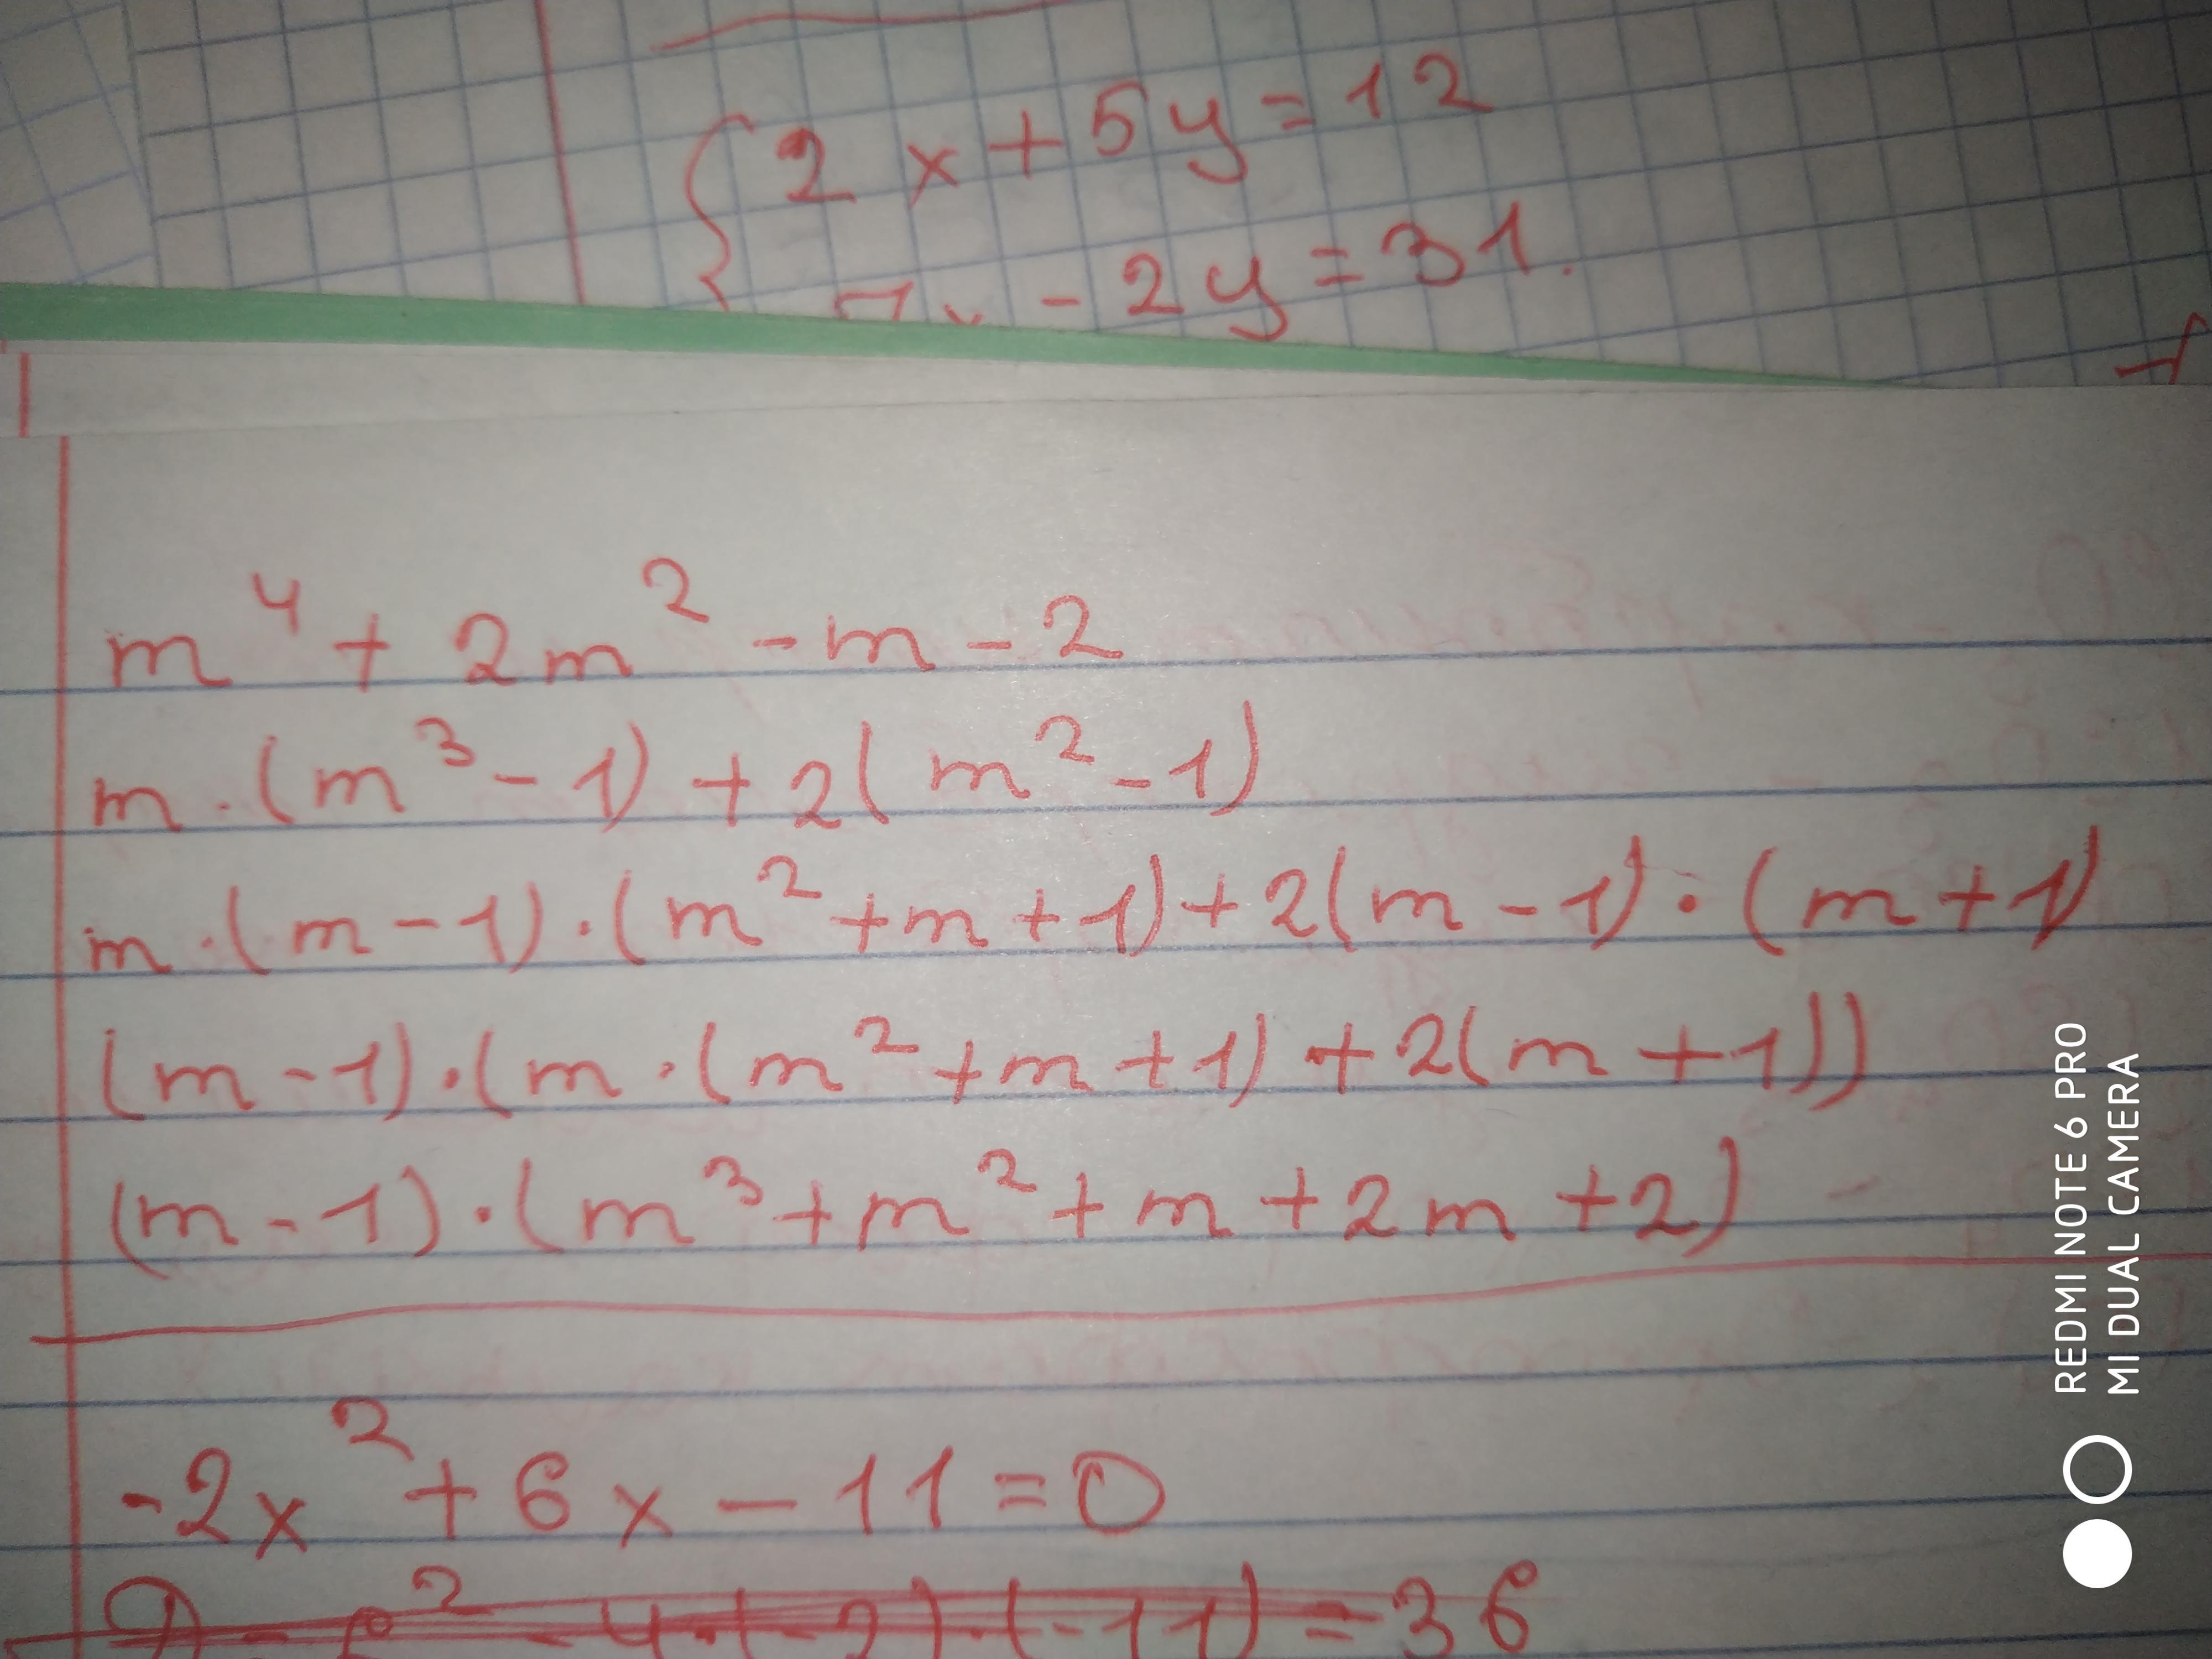 2x+5y=12
7x-2y=31.
m⁴+2m²-m-2
m·(m³-1)+2(m²-1)
m·(m-1)·(m²+m+1)+2(m-1)·(m+1)
(m-1)·(m·(m²+m+1)+2(m+1))
(m-1)·(m³+m²+m+2m+2)
-2x²+6x-11=0
D=6²-4·(-2)·(-11)=36
REDMI NOTE 6 PRO
MI DUAL CAMERA